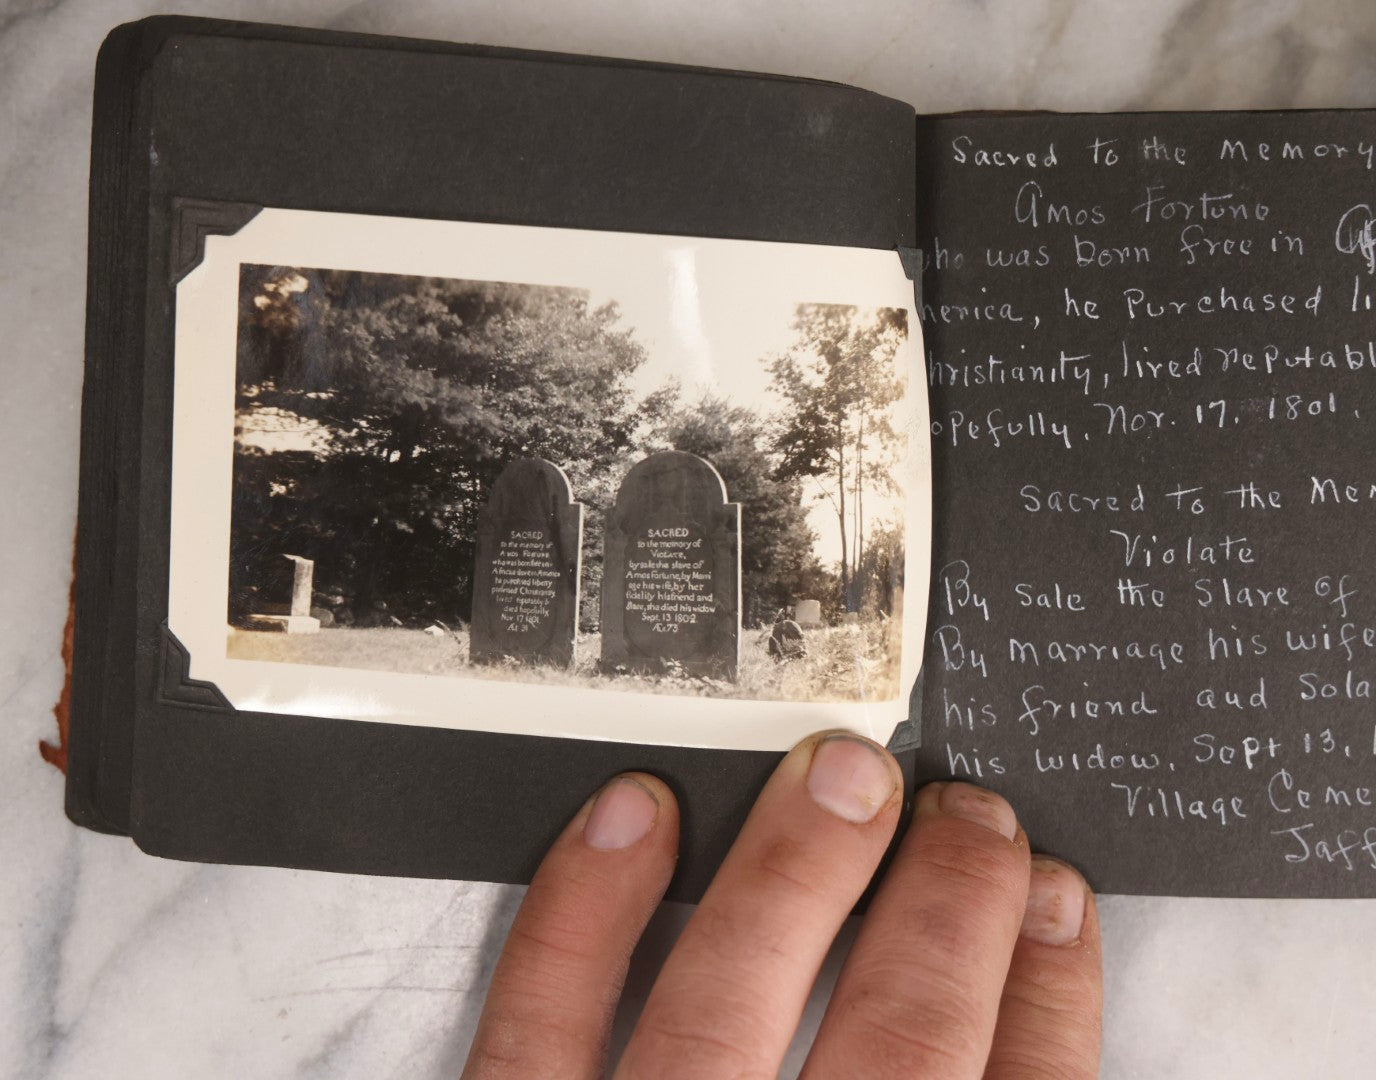 SACRED
to the memory of
Amos Fortune
who was born free in
Africa a slave in America
he purchased liberty
professed Christianity
lived reputably &
died hopefully
Nov. 17 1801
Æt. 91
SACRED
to the memory of
VIOLATE,
by sale the slave of
Amos Fortune, by Marri
age his wife, by her
fidelity his friend and
solace, she died his widow
Sept. 13 1802
Æt. 73
Sacred to the Memory
Amos Fortune
who was born free in
merica, he Purchased li
hristianity, lived reputabl
opefully, Nov. 17, 1801.
Sacred to the Mem
Violate
By Sale the Slave of
By marriage his wife
his friend and Sola
his widow, Sept 13, 1
Village Ceme
Jaff